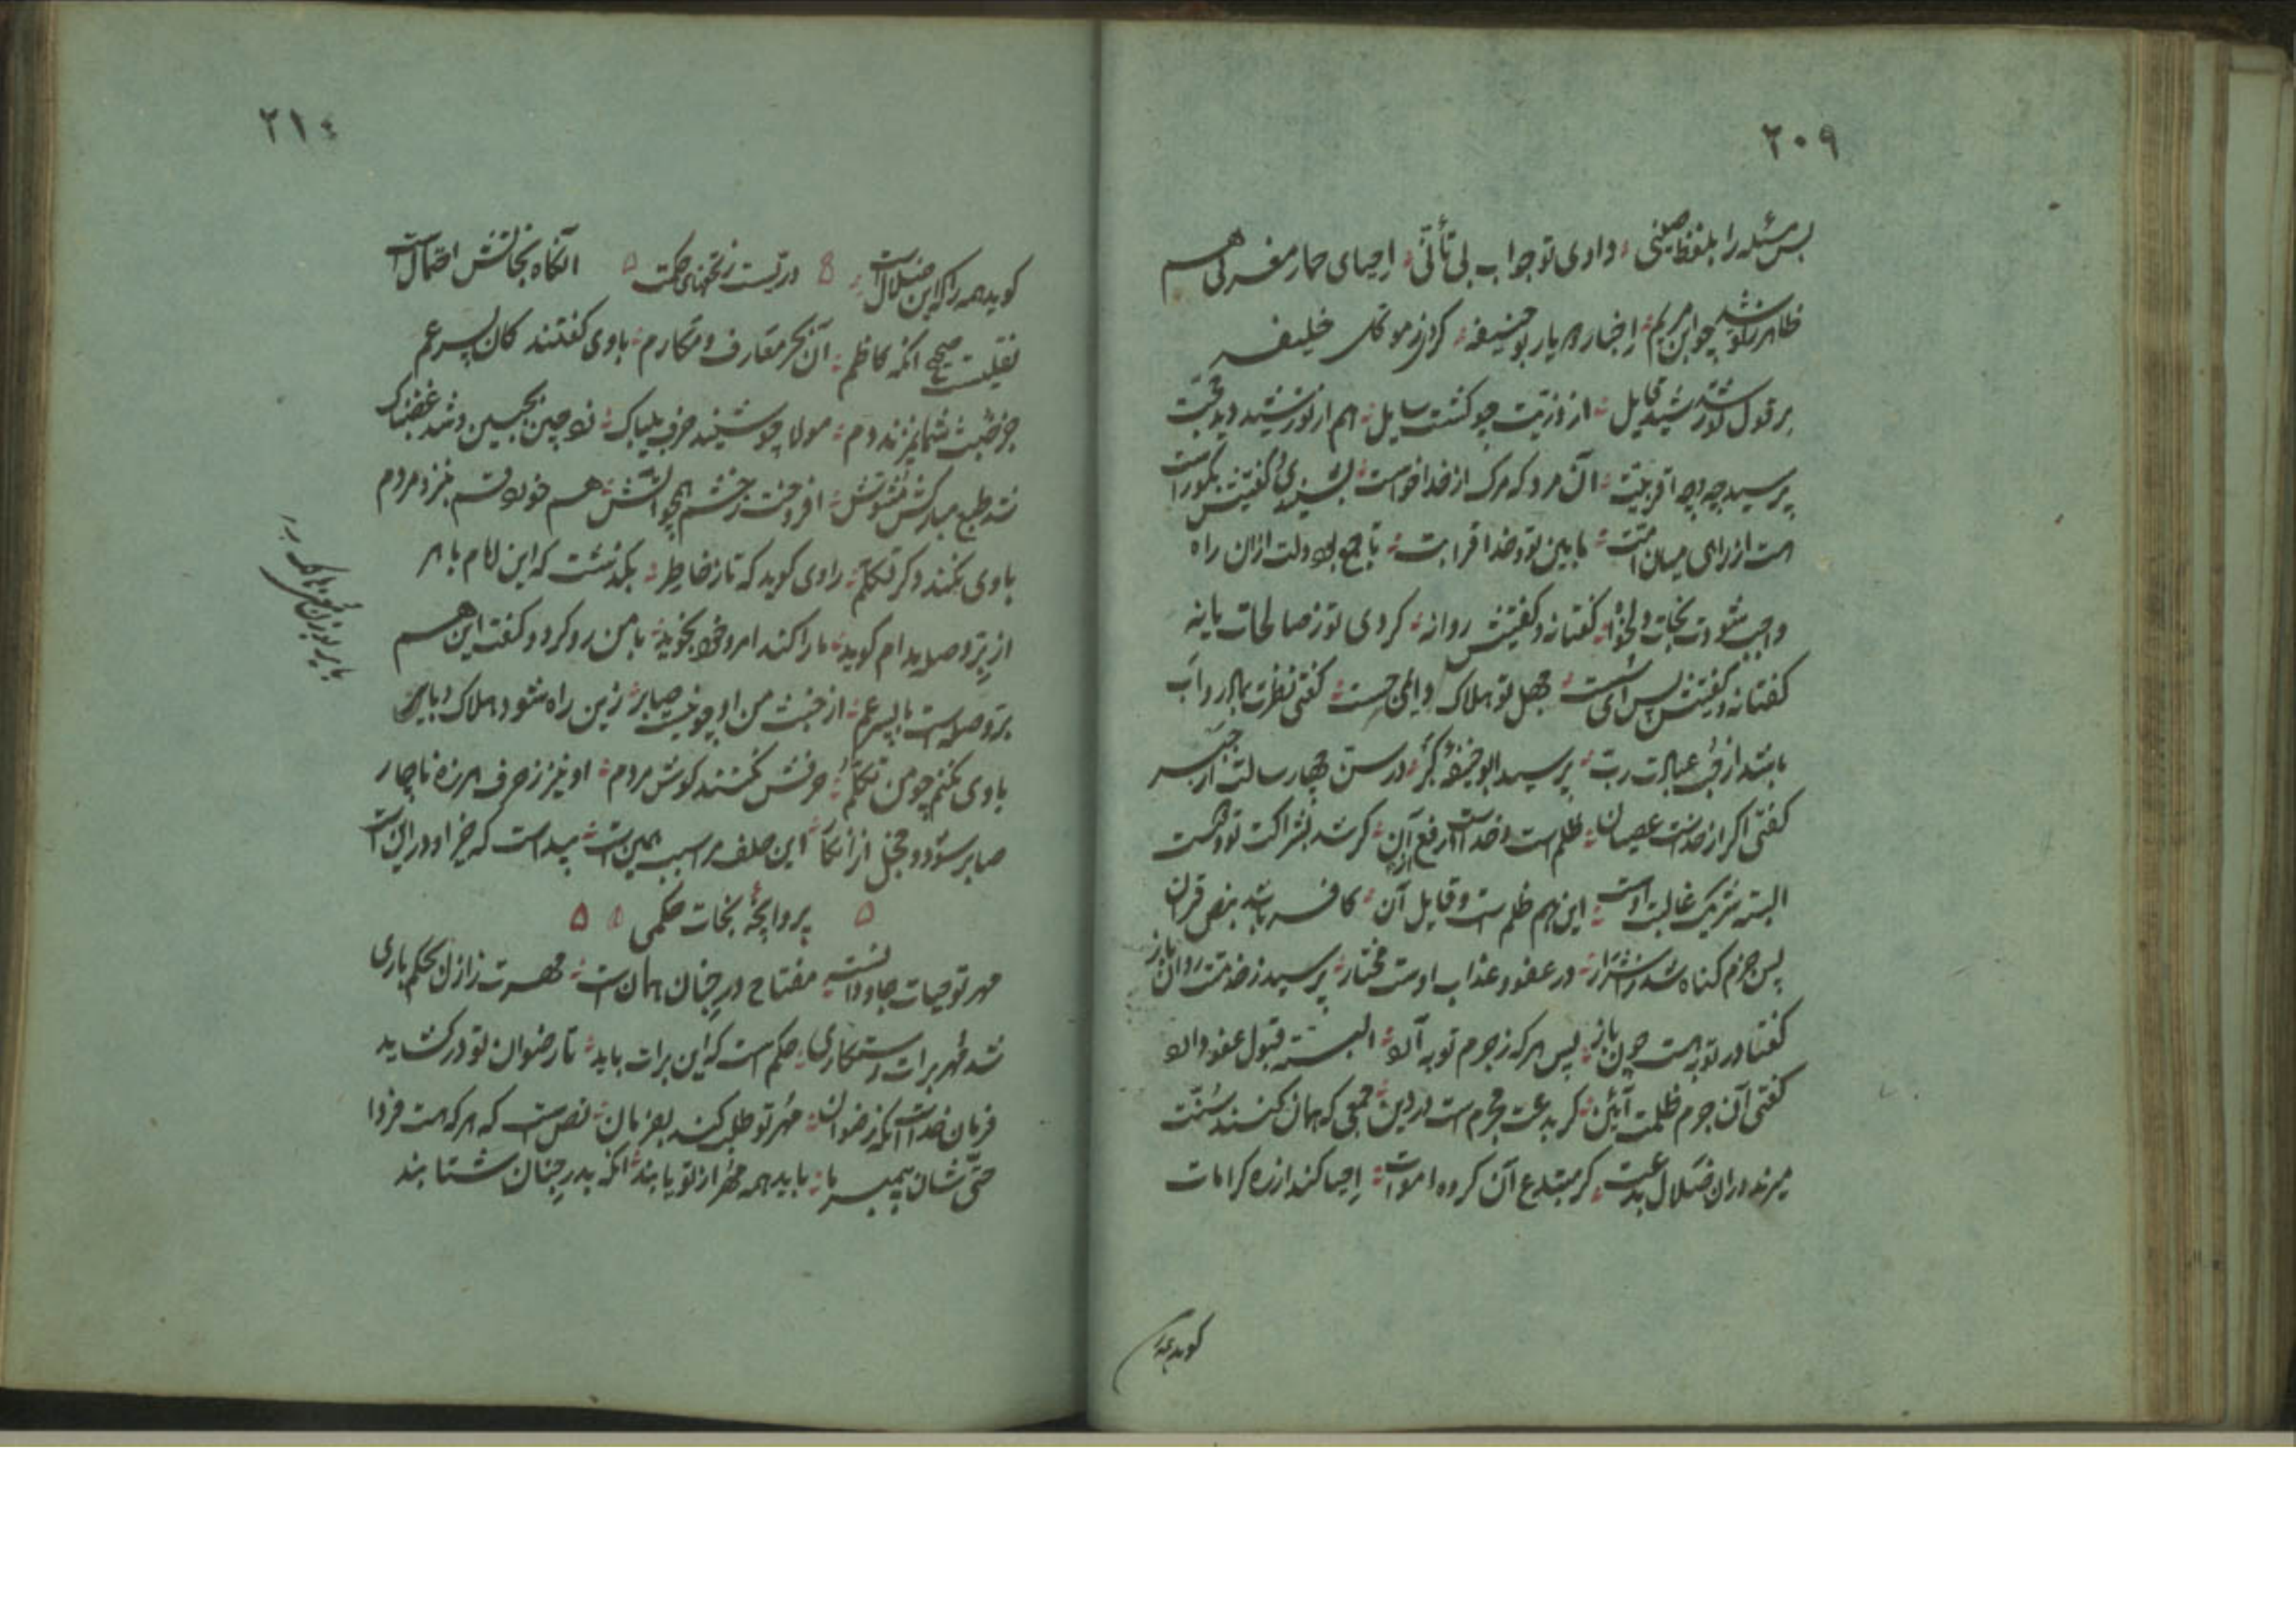 ۲۰۹
بس مسئله را بلفظ صینی دادی تو جواب بی تأنّی احیای حمار مغربی هم
ظاهر ز تو شد چو ابن مریم اخبار هر یار بوحنیفه کردن ز موکل خلیفه
بر قول تو شد رشید قایل از ذریت چو گشت سایل هم از تو رشید دید حجت
پرسید چه بود اقربیت آن مرد که مرگ از خدا خواست بشنیدی و گفتیش نکوراست
هست از راهی میان امت مابین تو و خدا قرابت تا جمع بود دلت ازان راه
واجب شودت نجات دلخواه گفتا نه و گفتیش روانه کردی تو ز صالحات یا نه
گفتا نه و گفتیش پس ای سست جهل تو هلاک والی جست گفتی نظرت بمادر و اب
باشد از قبیل عبادت رب پرسید ابوحنیفهٔ گبر در سن چهار سالت از جبر
گفتی اگر از خداست عصیان ظلم است و خداست ارفع از آن گر شد بشراکت تو و هست
البته شریک غالب اوست این هم ظلم است و قایل آن کافر باشد بنص قرآن
پس جرم گناه شد ز اشرار در عفو و عذاب اوست مختار پرسید ز خدمتت روان باز
گفتا در توبه هست چون باز پس هر که ز جرم توبه آرد البته قبول عفو دارد
گفتی آن جرم ظلمت آئین کز بدعت مجرم است در دین جمعی که بآن کنند سنت
میرند دران ضلال بدعت گر مبتدع آن گروه اموات احیا کند از ره کرامات
گوید همه را
۲۱۰
گوید همه را که این ضلالت در تست ز نکتهای حکمت آنگاه نجاتش احتمال است
نقلیست صحیح آنکه کاظم آن بحر معارف و مکارم با وی گفتند کان پسر عم
جز خبث شما نمیزند دم مولا چو شنیند حرف بیباک زد چین بجبین و شد غضبناک
شد طبع مبارکش مشوش افروخت ز خشم همچو آتش هم خورد قسم بنزد مردم
با وی نکند دگر تکلم راوی گوید که تا ز خاطر بگذشت که این امام با هر
از بر و صله مدام گوید ما را کند امر و خود نجوید با من رو کرد و گفت این هم
بر و صله است با پسر عم از خبث من او چو نیست صابر زین راه شود هلاک و بایر
با وی نکنم چو من تکلم حرفش نکنند گوش مردم او نیز ز حرف هرزه ناچار
صابر شود و خجل از انکار این حلف مرا سبب همین است پیداست که خیر او در این است
پروانچهٔ نجات حکمی
مهر تو حیات جاودانست مفتاح در جنان همان است مهرت ز ازل بحکم باری
شد مهر برات رستگاری حکم است که این برات باید تا رضوان تو در گشاید
فرمان خداست آنکه رضوان مهر تو طلب کند بفرمان نص است که هر که هست فردا
حتی شان پیمبر ما باید همه مهر از تو یابند آنکه بدر جنان شتابند